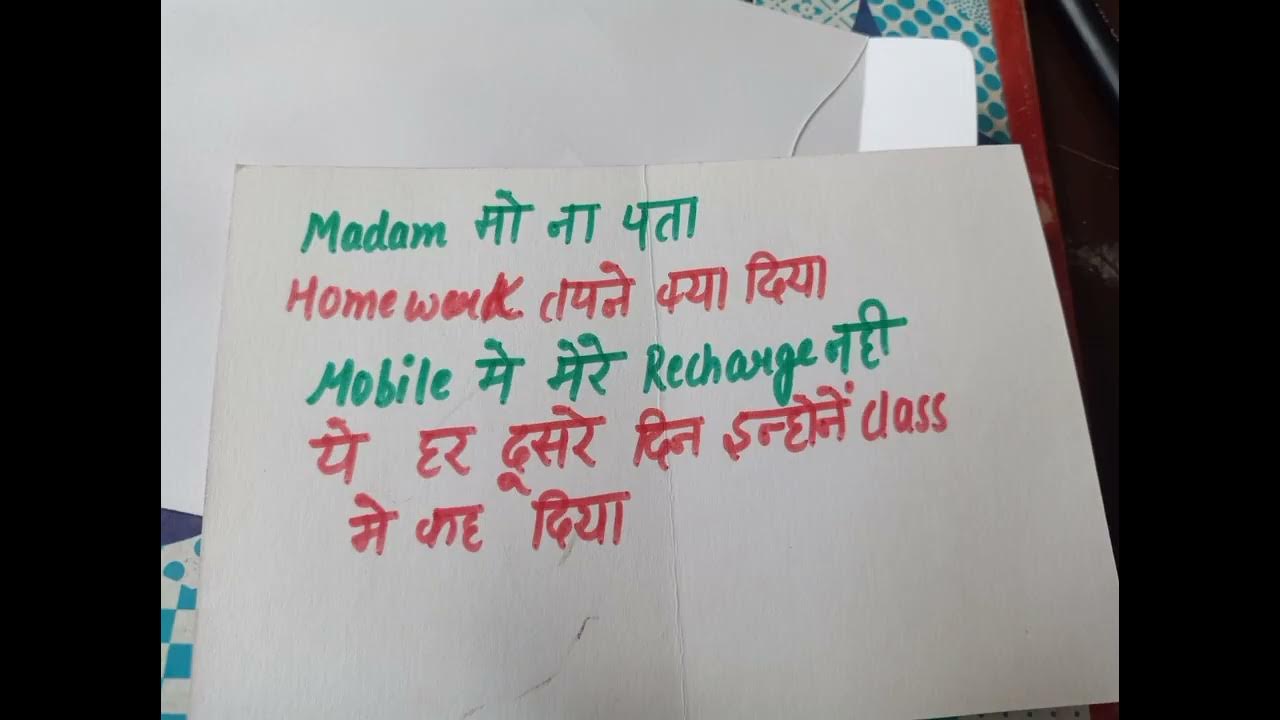 Madam मो ना पता
Homework तपने क्या दिया
Mobile मे मेरे Recharge नही
ये हर दूसरे दिन इन्होनें class
मे कह दिया